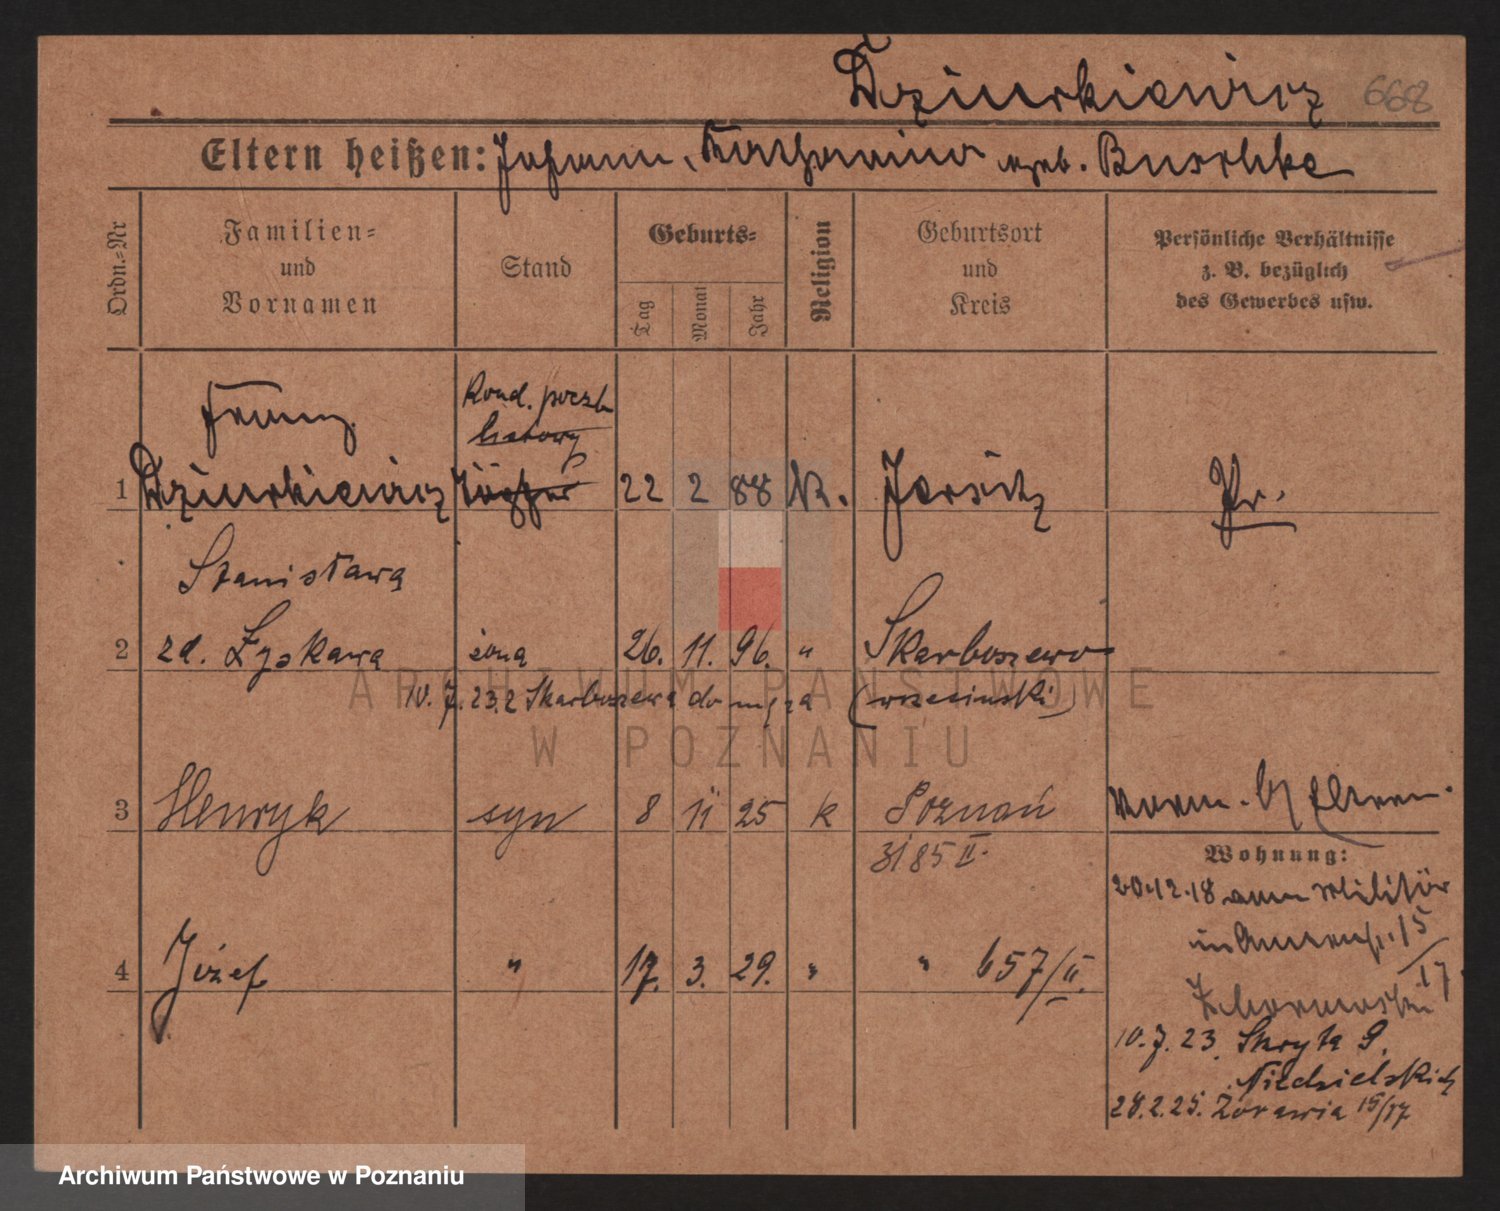 Dziurkiewicz 668
Eltern heißen: Johann, Katharina geb. Buschke
Ordn.-Nr
Familien-
und
Vornamen
Stand
Geburts-
Tag
Monat
Jahr
Religion
Geburtsort
und
Kreis
Persönliche Verhältnisse
z. B. bezüglich
des Gewerbes usw.
Kond. poczt
listowy
Franz
1 Dziurkiewicz 22 2 88 K. Jersitz Pr.
Stanisława
2 zd. Łyskawa żona 26. 11. 96. " Skarboszewo
10. 7. 23. z Skarboszewa do męża (wrzesiński)
3 Henryk syn 8 11 25 k Poznań
3185 II.
vorm. b/ Eltern.
Wohnung:
20.12.18 vom Militär
15/17
4 Józef " 17. 3. 29. " " 657/II.
10. 7. 23. Skryta 9.
Niedzielskich
28.2.25. Żórawia 15/17
ARCHIWUM PAŃSTWOWE
W POZNANIU
Archiwum Państwowe w Poznaniu